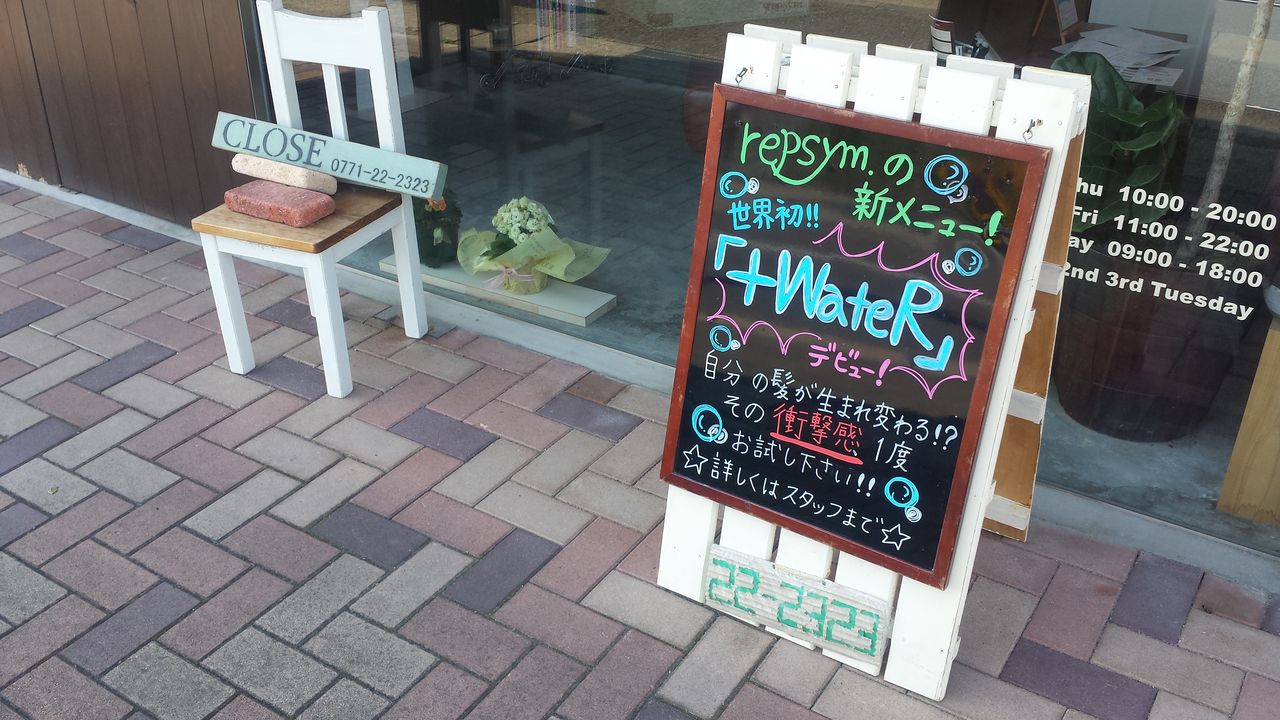 CLOSE 0771-22-2323
repsym.の
新メニュー!
世界初!!
「+WateR」
デビュー!
自分の髪が生まれ変わる!?
その衝撃感、1度
お試し下さい!!
☆詳しくはスタッフまで☆
22-2323
hu 10:00 - 20:00
Fri 11:00 - 22:00
ay 09:00 - 18:00
2nd 3rd Tuesday